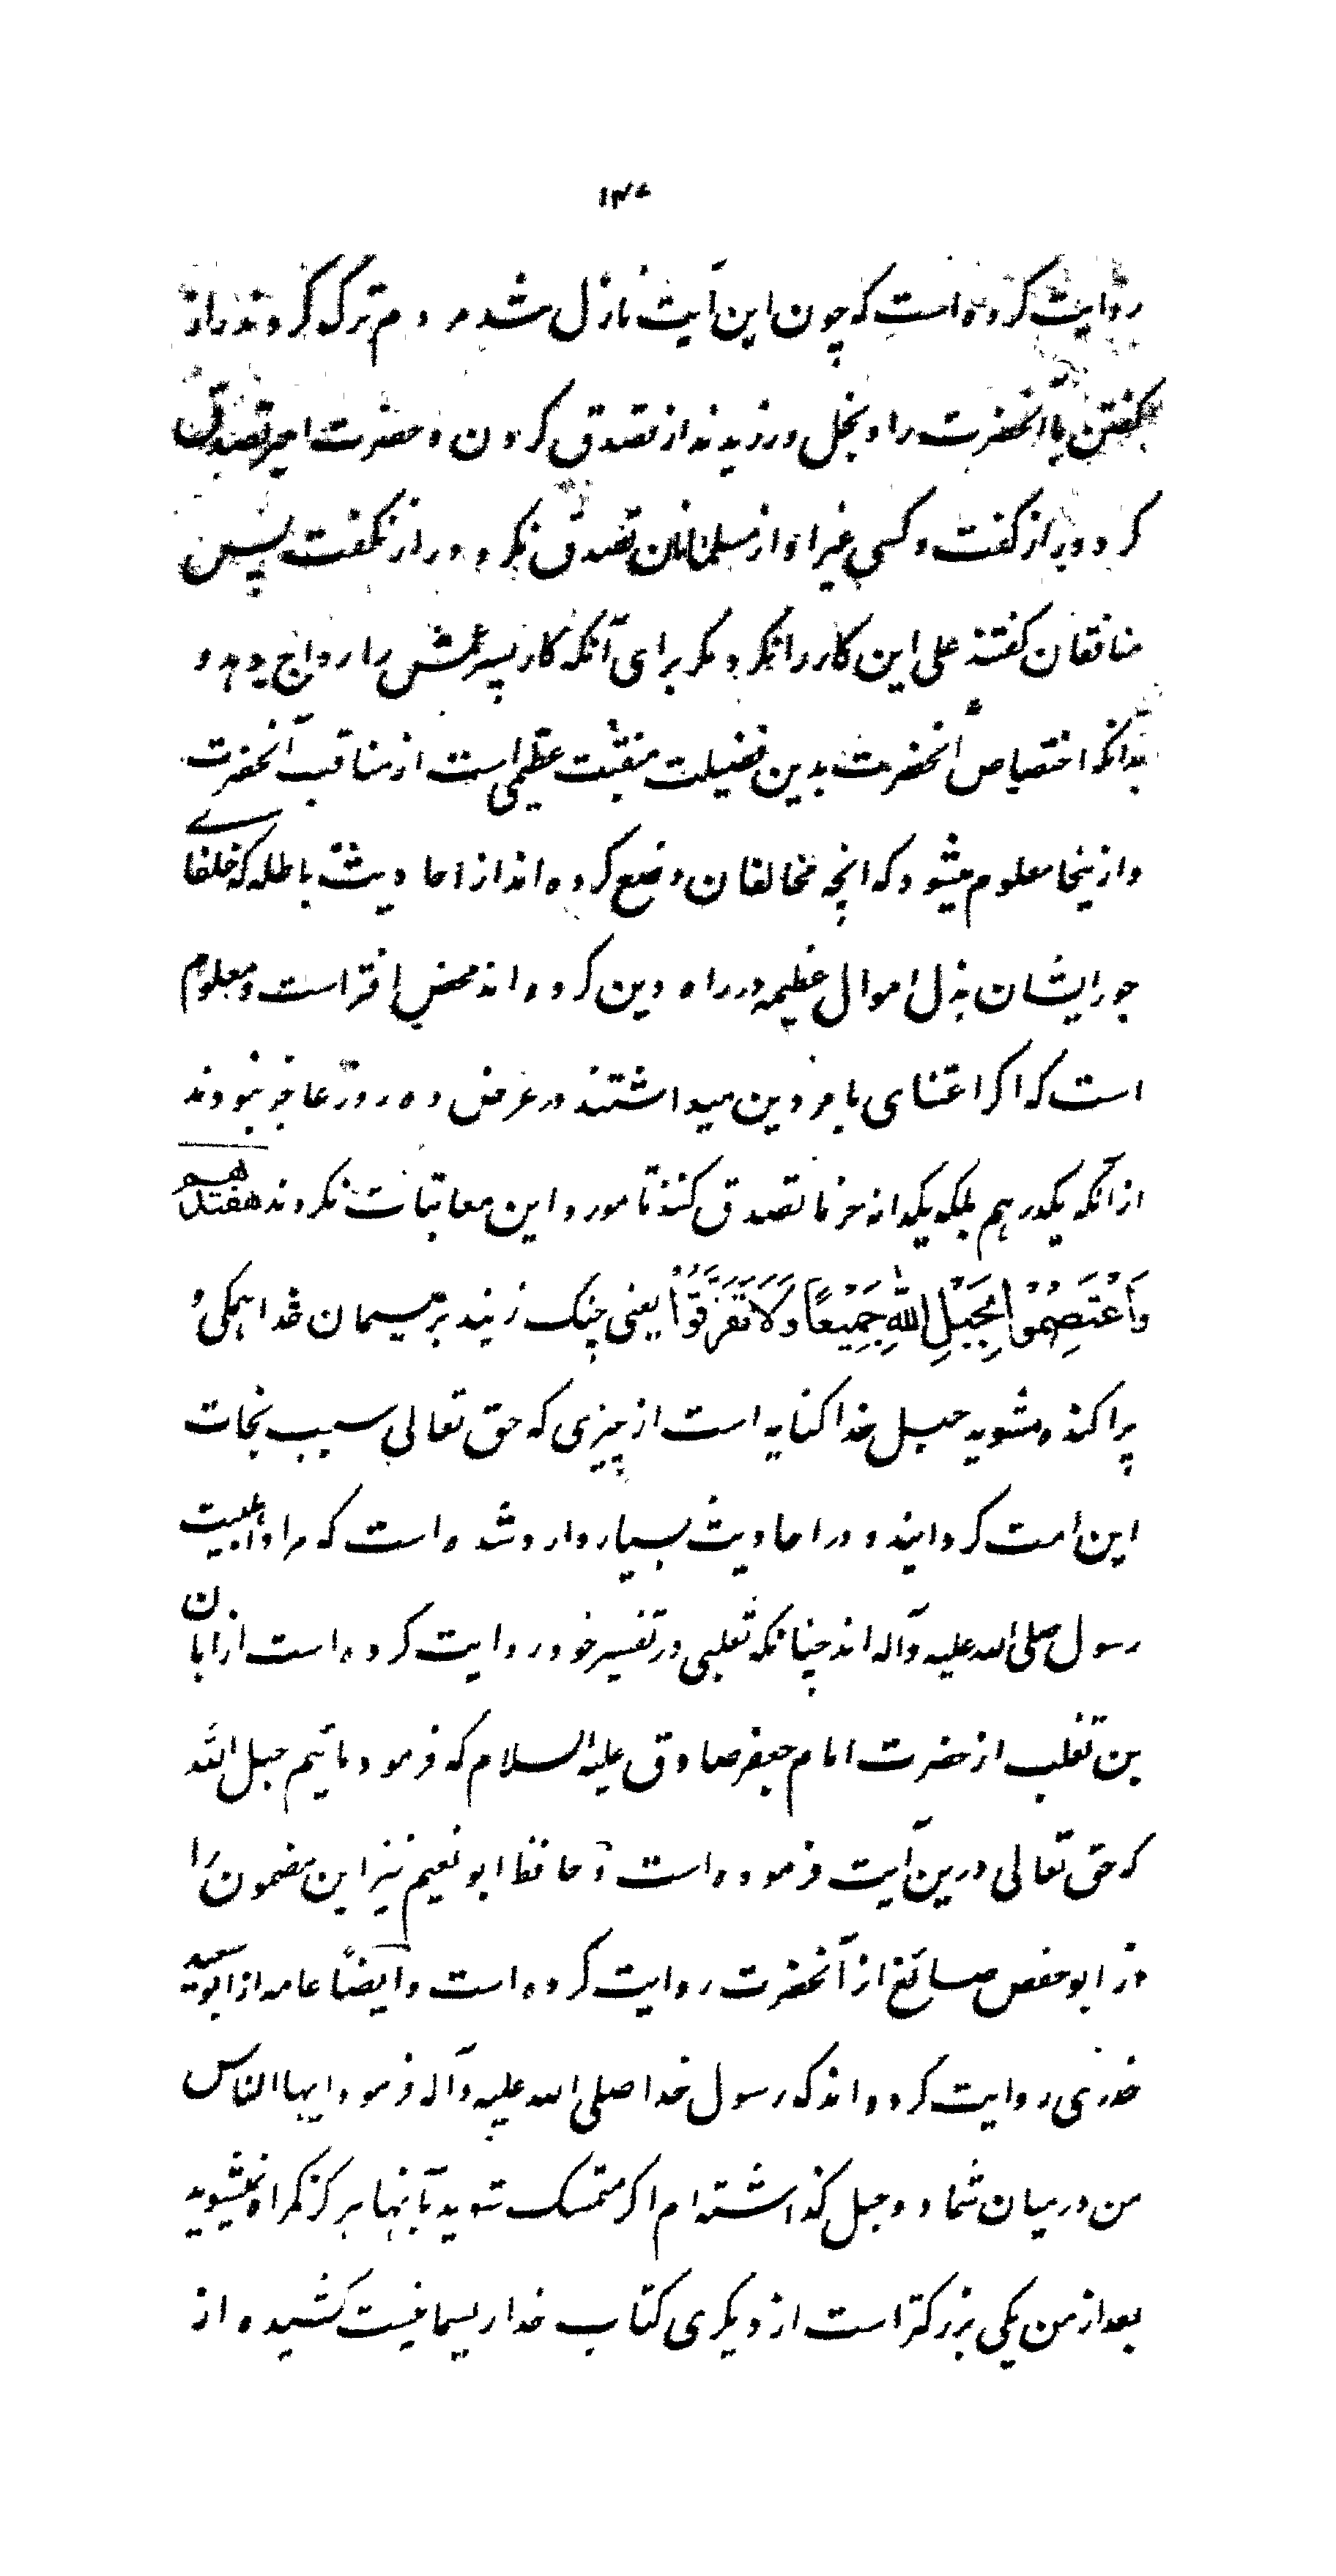 ۱۴۷
روایت کرده است که چون این آیت نازل شد مردم ترک کردند راز
گفتن با آنحضرت را و بخل ورزیدند از تصدق کردن و حضرت امیر تصدق
کرد و راز گفت و کسی غیر او از مسلمانان تصدق نکرد و راز نگفت پس
منافقان گفتند علی این کار را نکرد مگر برای آنکه کار پسر عمش را رواج بدهد و
بدانکه اختصاص آنحضرت بدین فضیلت منقبت عظمی است از مناقب آنحضرت
و ازینجا معلوم میشود که انچه مخالفان وضع کرده اند از احادیث باطله که خلفای
جور ایشان بذل اموال عظیمه در راه دین کرده اند محض افترا است و معلوم
است که اگر اعتنای بامر دین میداشتند در عرض ده روز عاجز نبودند
از آنکه یکدرهم بلکه یکدانه خرما تصدق کنند تا مورد این معاتبات نگردند هفتدهم
وَاعْتَصِمُوْا بِحَبْلِ اللّٰهِ جَمِیْعًا وَلَا تَفَرَّقُوْا یعنی چنگ زنید بریسمان خدا همگی و
پراکنده مشوید حبل خدا کنایه است از چیزی که حق تعالی سبب نجات
این امت گردانید و در احادیث بسیار وارد شده است که مراد اهلبیت
رسول صلی الله علیه و آله اند چنانکه ثعلبی در تفسیر خود روایت کرده است از ابان
بن تغلب از حضرت امام جعفر صادق علیه السلام که فرمود مائیم حبل الله
که حق تعالی درین آیت فرموده است و حافظ ابو نعیم نیز این مضمون را
از ابو حفص صائغ از آنحضرت روایت کرده است و ایضاً عامه از ابو سعید
خدری روایت کرده اند که رسول خدا صلی الله علیه و آله فرمود ایها الناس
من در میان شما دو حبل گذاشته ام اگر متمسک شوید بآنها هرگز گمراه نمیشوید
بعد از من یکی بزرگتر است از دیگری کتاب خدا ریسمانیست کشیده از